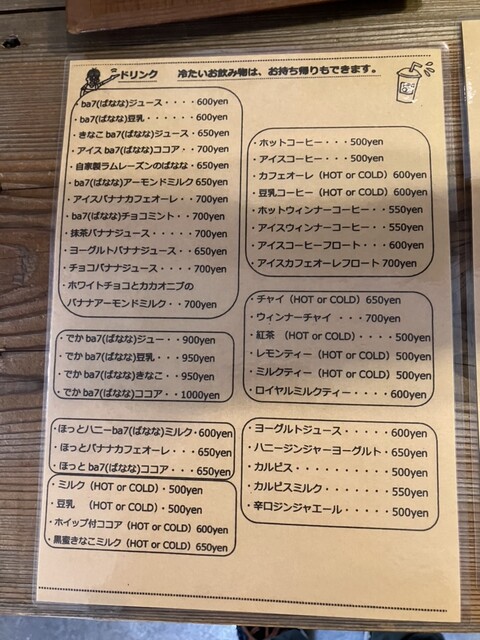 ドリンク 冷たいお飲み物は、お持ち帰りもできます。
・ba7(ばなな)ジュース・・・・600yen
・ba7(ばなな)豆乳・・・・・・・600yen
・きなこba7(ばなな)ジュース・650yen
・アイスba7(ばなな)ココア・・700yen
・自家製ラムレーズンのばなな・650yen
・ba7(ばなな)アーモンドミルク650yen
・アイスバナナカフェオーレ・・700yen
・ba7(ばなな)チョコミント・・700yen
・抹茶バナナジュース・・・・・700yen
・ヨーグルトバナナジュース・・650yen
・チョコバナナジュース・・・・700yen
・ホワイトチョコとカカオニブの
バナナアーモンドミルク・・700yen
・でかba7(ばなな)ジュー・・900yen
・でかba7(ばなな)豆乳・・950yen
・でかba7(ばなな)きなこ・・950yen
・でかba7(ばなな)ココア・・1000yen
・ほっとハニーba7(ばなな)ミルク・600yen
・ほっとバナナカフェオーレ・・・650yen
・ほっとba7(ばなな)ココア・・・650yen
・ミルク(HOT or COLD)・500yen
・豆乳 (HOT or COLD)・500yen
・ホイップ付ココア(HOT or COLD)600yen
・黒蜜きなこミルク(HOT or COLD)650yen
・ホットコーヒー・・・500yen
・アイスコーヒー・・・500yen
・カフェオーレ(HOT or COLD)600yen
・豆乳コーヒー(HOT or COLD)600yen
・ホットウィンナーコーヒー・・550yen
・アイスウィンナーコーヒー・・550yen
・アイスコーヒーフロート・・・600yen
・アイスカフェオーレフロート700yen
・チャイ(HOT or COLD)650yen
・ウィンナーチャイ ・・・700yen
・紅茶 (HOT or COLD)・・・・500yen
・レモンティー(HOT or COLD)500yen
・ミルクティー(HOT or COLD)500yen
・ロイヤルミルクティー・・・・600yen
・ヨーグルトジュース・・・・・600yen
・ハニージンジャーヨーグルト・650yen
・カルピス・・・・・・・・・・500yen
・カルピスミルク・・・・・・・550yen
・辛口ジンジャエール・・・・・500yen